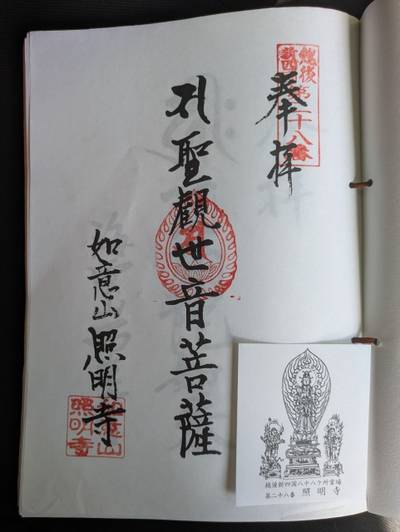 越後
新四国
第二十八番
奉拝
聖觀世音菩薩
如意山照明寺
如意山
照明寺
越後新四国八十八ケ所霊場
第二十八番 照明寺